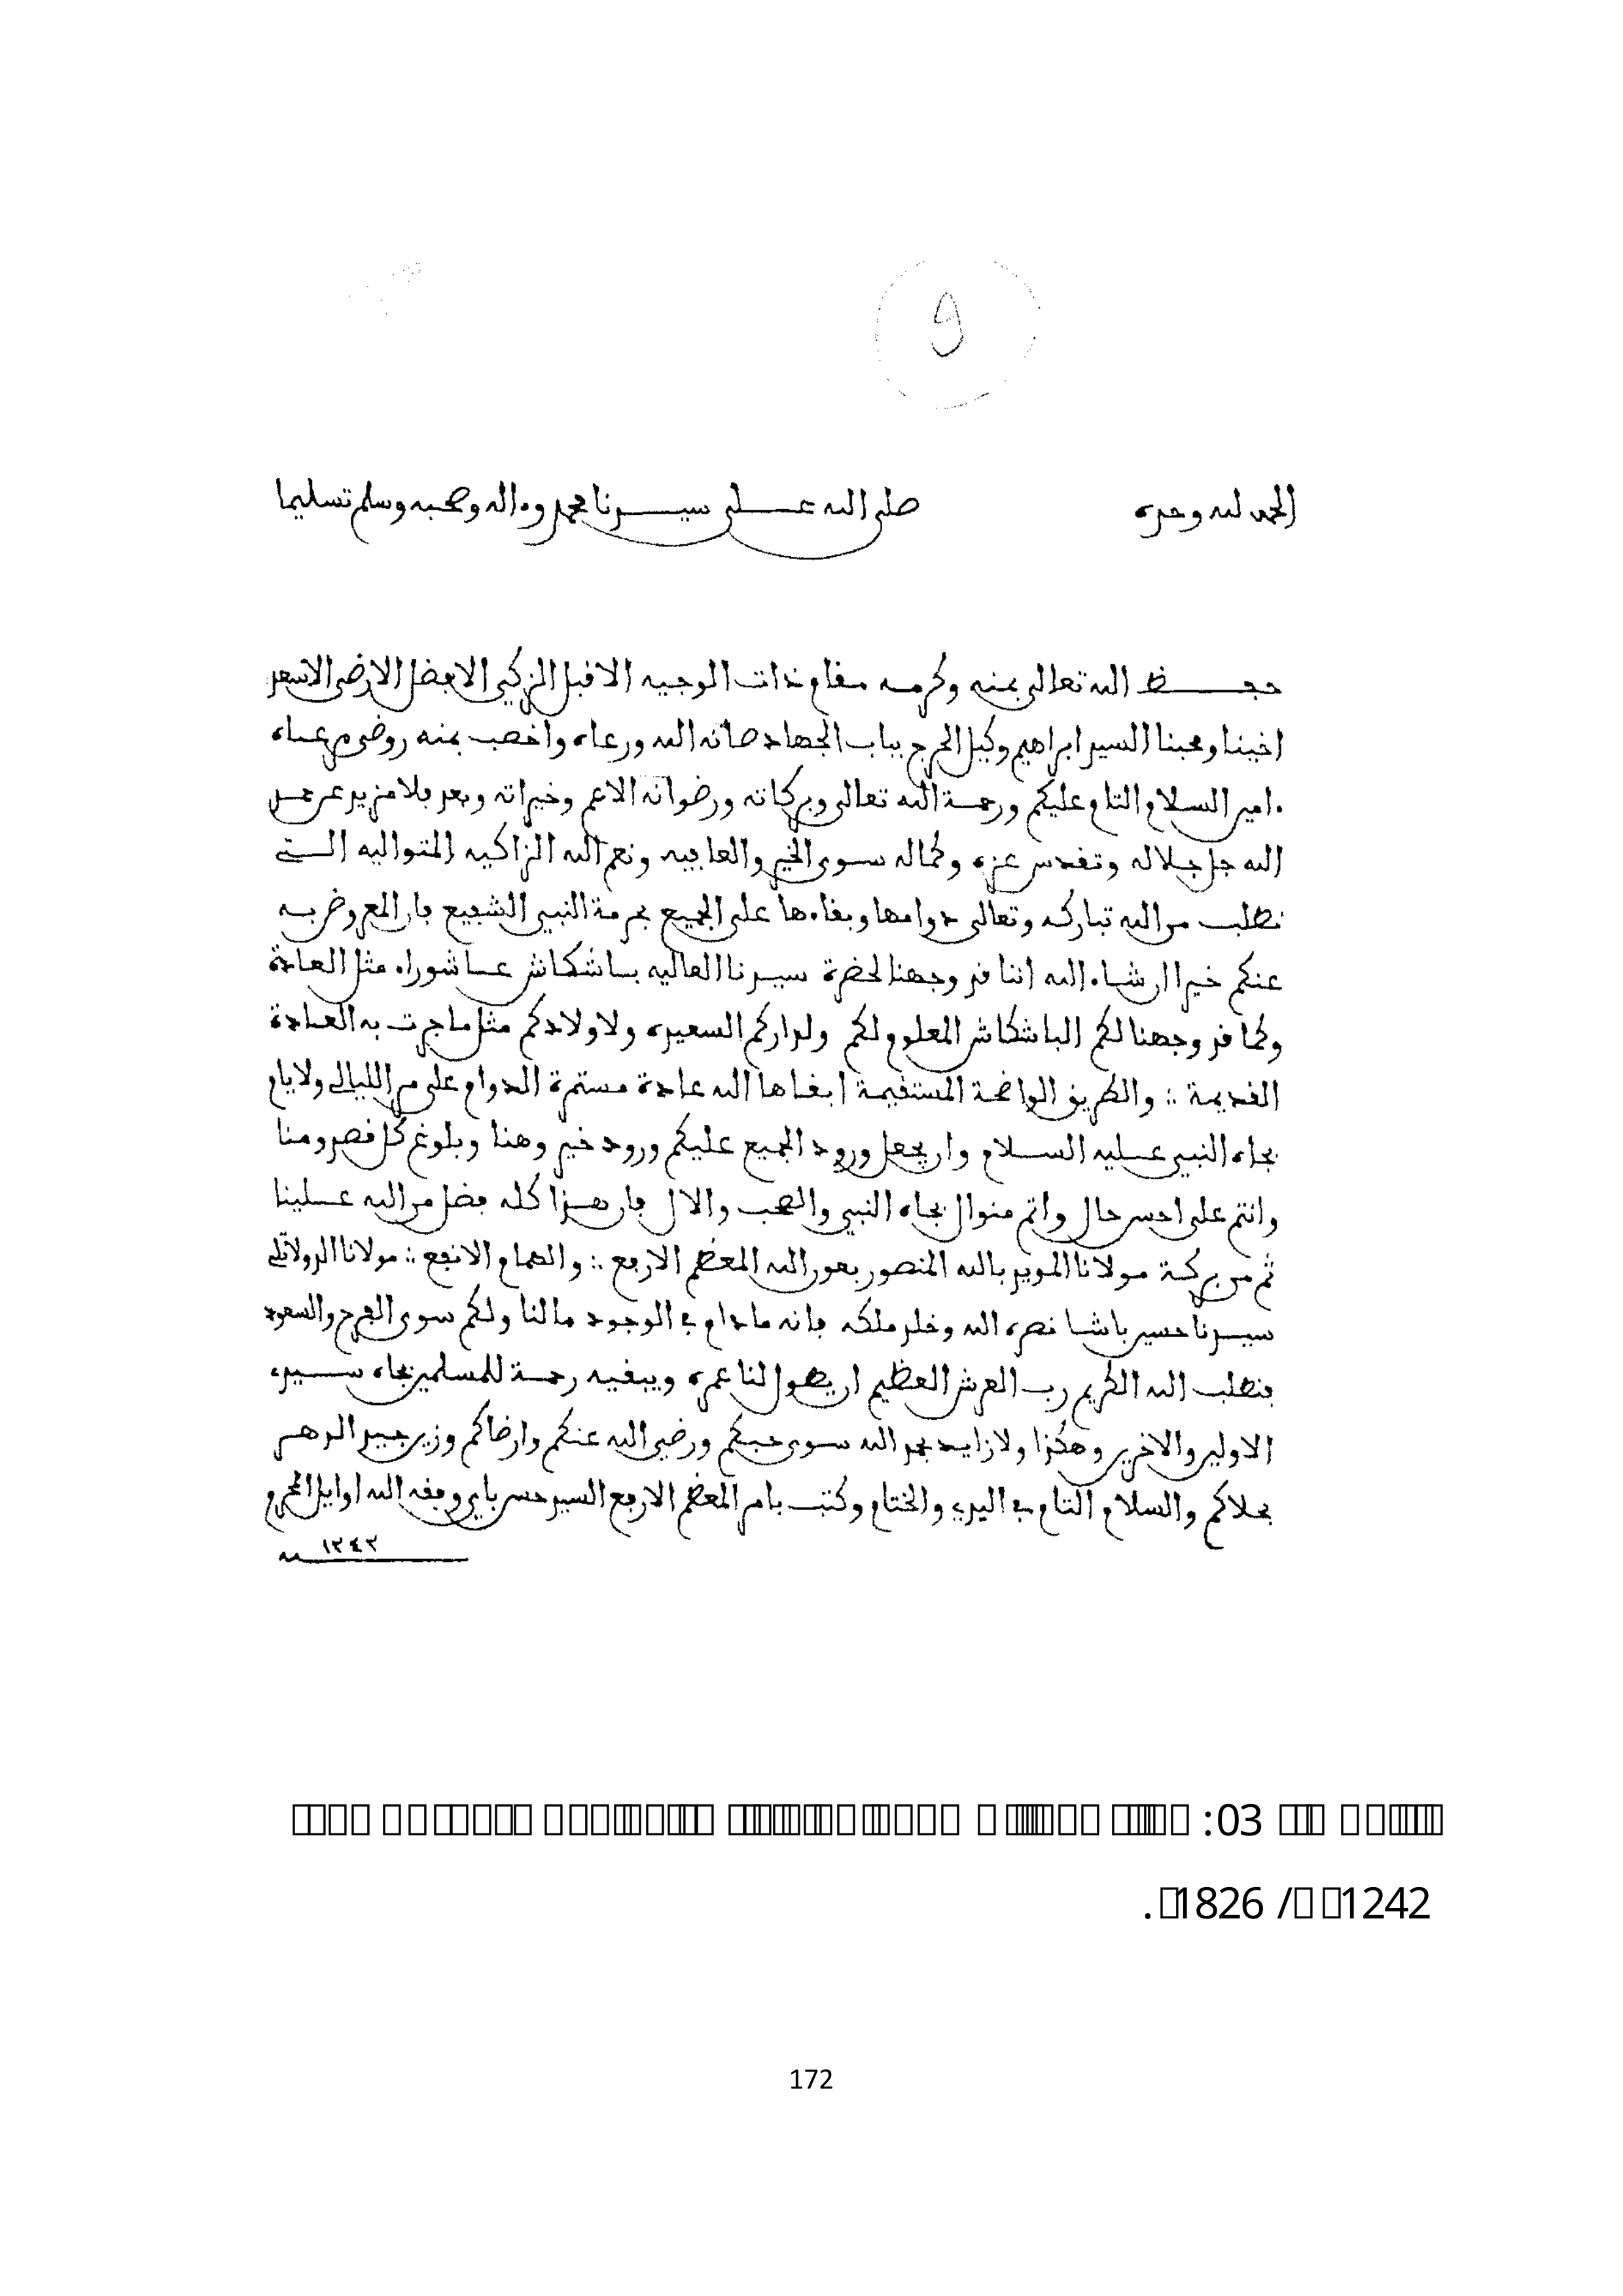 9
الحمد لله وحده صلى الله على سيدنا محمد وءاله وصحبه وسلم تسليما
حفظ الله تعالى بمنه وكرمه مقام ذات الوجيه الاقبل الزكي الافضل الارضى الاسعد
اخينا ومحبنا السيد ابراهيم وكيل الحرج بباب الجهاد صانه الله ورعاه واخصب بمنه روض مرعاه
ءامين السلام التام عليكم ورحمة الله تعالى وبركاته ورضوانه الاعم وخيراته وبعد فلا مزيد عن حمد
الله جل جلاله وتقدس عزه وكماله سوى الخير والعافيه ونعم الله الزاكيه المتواليه التي
نطلب من الله تبارك وتعالى دوامها وبقاءها على الجميع بحرمة النبي الشفيع فان المعروض به
عنكم خيرا ان شاء الله اننا قد وجهنا لحضرة سيدنا العاليه بساشكاش عاشوراء مثل العادة
وكما قد وجهنا لكم الباشكاش المعلوم لكم ولداركم السعيده ولاولادكم مثل ما جرت به العادة
القديمة :: والطريق الواضحة المستقيمة ابقاها الله عادة مستمرة الدوام على مر الليالي ولايام
بجاه النبي عليه السلام وان يجعل ورود الجميع عليكم ورود خير وهنا وبلوغ كل قصد ومنا
وانتم على احسن حال واتم منوال بجاه النبي والصحب والال فان هذا كله فضل من الله علينا
ثم من بركة مولانا المويد بالله المنصور بعون الله المعظم الارفع :: والهمام الانفع :: مولانا الدولاتلي
سيدنا حسين باشا نصره الله وخلد ملكه فانه ما دام في الوجود ما لنا ولكم سوى الفرح والسعود
فنطلب الله الكريم رب العرش العظيم ان يطول لنا عمره ويبقيه رحمة للمسلمين بجاه سيد
الاولين والاخرين وهكذا ولا زايد بحمد الله سوى حبكم ورضي الله عنكم وارضاكم وزين جيد الدهر
بحلاكم والسلام التام في البدء والختام وكتب بامر المعظم الارفع السيد حسن باي وفقه الله اوايل المحرم
١٢٤٢
03:
1242 / 1826.
172